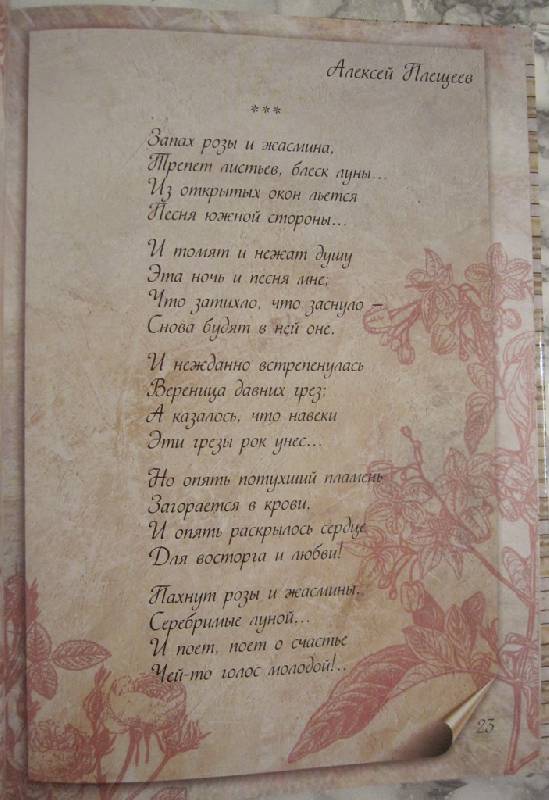 Алексей Плещеев
***
Запах розы и жасмина,
Трепет листьев, блеск луны...
Из открытых окон льется
Песня южной стороны...
И томят и нежат душу
Эта ночь и песня мне;
Что затихло, что заснуло –
Снова будят в ней оне.
И нежданно встрепенулась
Вереница давних грез;
А казалось, что навеки
Эти грезы рок унес...
Но опять потухший пламень
Загорается в крови,
И опять раскрылось сердце
Для восторга и любви!
Пахнут розы и жасмины,
Серебримые луной...
И поет, поет о счастье
Чей-то голос молодой!..
23